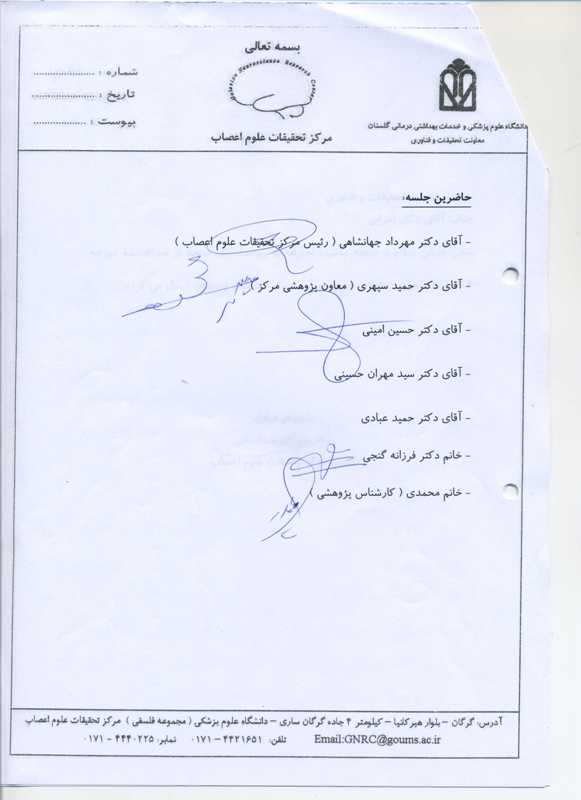 بسمه تعالی
Golestan Neuroscience Research Center
مرکز تحقیقات علوم اعصاب
شماره : ......................
تاریخ : ......................
پیوست : ...................
دانشگاه علوم پزشکی و خدمات بهداشتی درمانی گلستان
معاونت تحقیقات و فناوری
حاضرین جلسه:
- آقای دکتر مهرداد جهانشاهی ( رئیس مرکز تحقیقات علوم اعصاب )
- آقای دکتر حمید سپهری ( معاون پژوهشی مرکز )
- آقای دکتر حسین امینی
- آقای دکتر سید مهران حسینی
- آقای دکتر حمید عبادی
- خانم دکتر فرزانه گنجی
- خانم محمدی ( کارشناس پژوهشی )
آدرس: گرگان – بلوار هیرکانیا – کیلومتر ۴ جاده گرگان ساری – دانشگاه علوم پزشکی ( مجموعه فلسفی ) مرکز تحقیقات علوم اعصاب
Email:GNRC@goums.ac.ir تلفن: ۴۴۲۱۶۵۱ – ۰۱۷۱ نمابر: ۴۴۴۰۲۲۵ – ۰۱۷۱